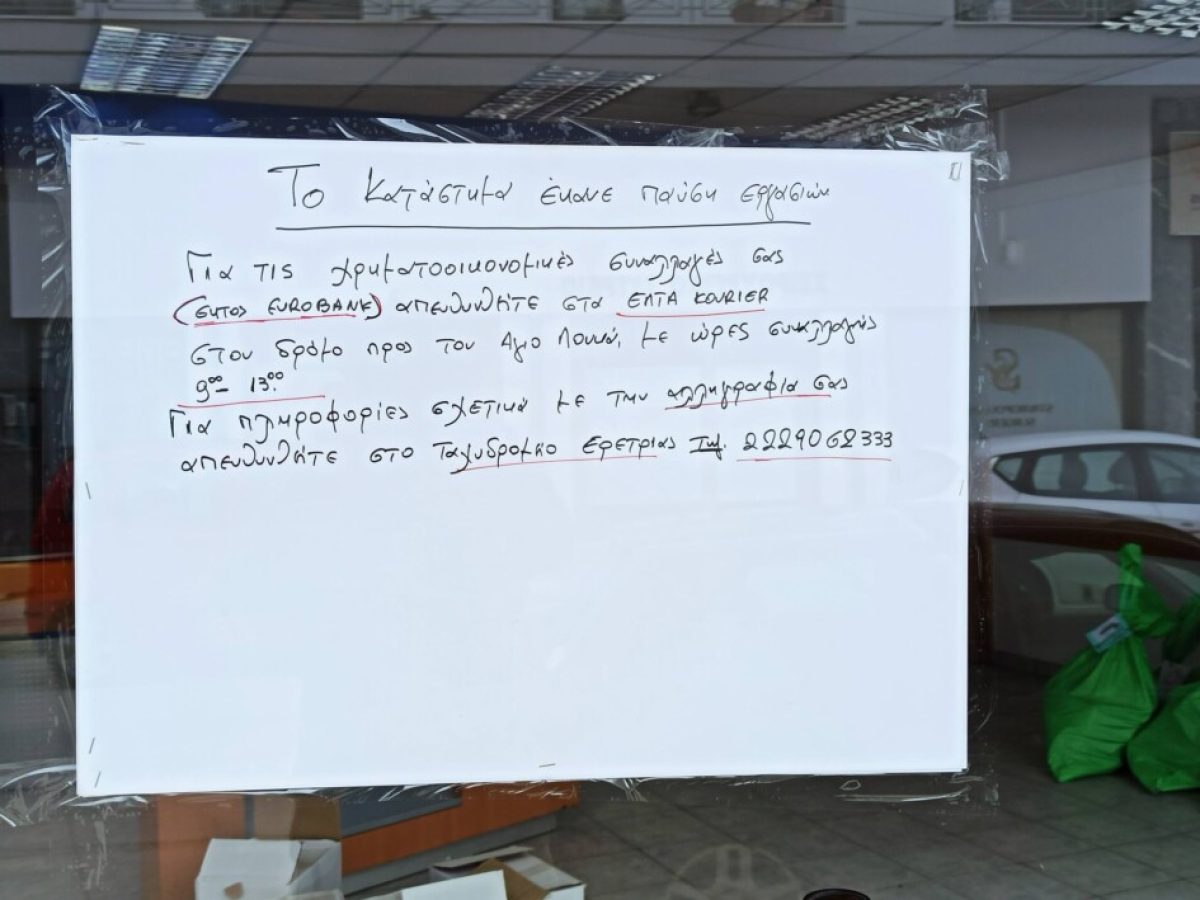 Το Κατάστημα έκανε παύση εργασιών
Για τις χρηματοοικονομικές συναλλαγές σας
(εκτος EUROBANK) απευθυνθήτε στα ΕΛΤΑ KOURIER
στον δρόμο προς τον Αγιο Λουκά, με ώρες συναλλαγής
9⁰⁰ - 13⁰⁰
Για πληροφορίες σχετικά με την αλληγραφία σας
απευθυνθήτε στο Ταχυδρομικο Ερετριας Τηλ. 2229062333